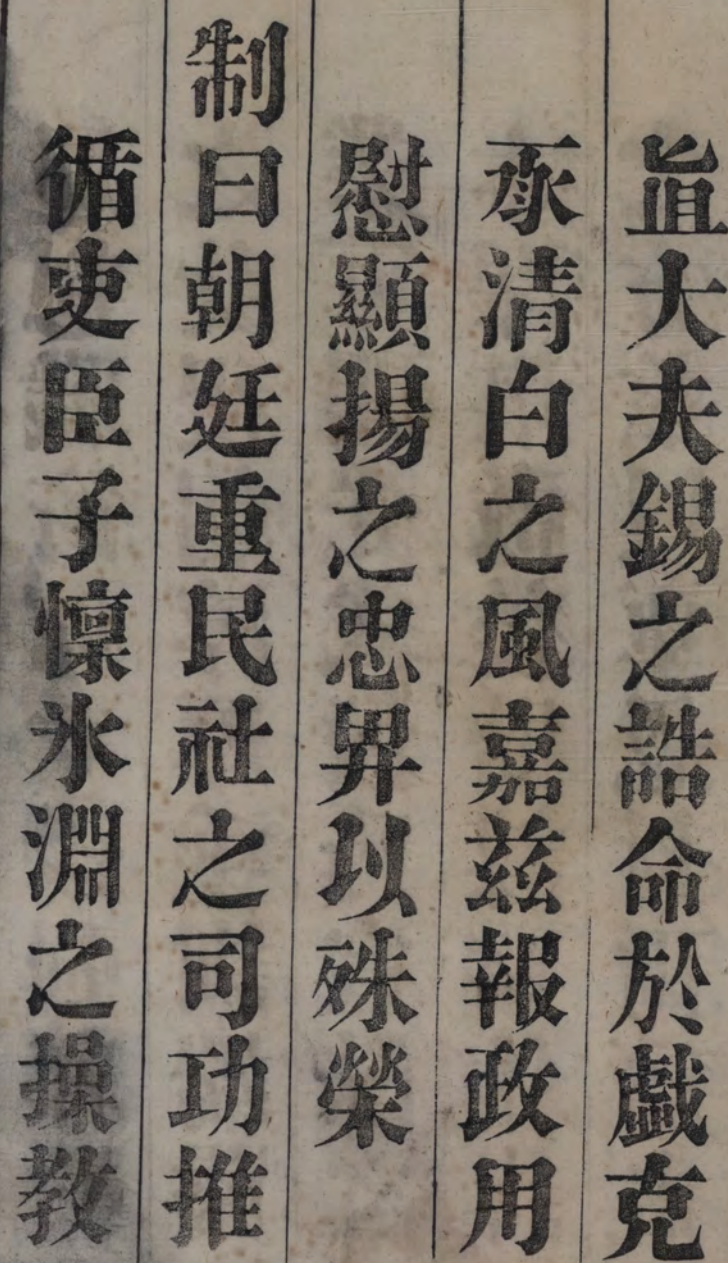 直大夫錫之誥命於戲克
承清白之風嘉兹報政用
慰顯揚之忠畀以殊榮
制曰朝廷重民社之司功推
循吏臣子懍氷淵之操教